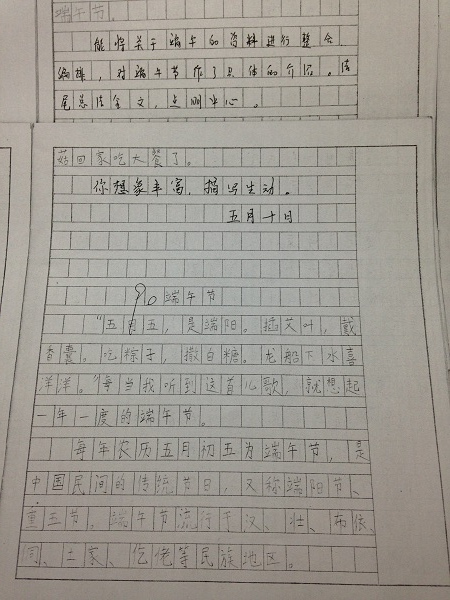 端午节。
能将关于端午的资料进行整合
编排，对端午节作了具体的介绍。结
尾总结全文，点明中心。
菇回家吃大餐了。
你想象丰富，描写生动。
五月十日
90
端午节
“五月五，是端阳。插艾叶，戴
香囊。吃粽子，撒白糖。龙船下水喜
洋洋。”每当我听到这首儿歌，就想起
一年一度的端午节。
每年农历五月初五为端午节，是
中国民间的传统节日，又称端阳节、
重五节。端午节流行于汉、壮、布依、
侗、土家、仡佬等民族地区。